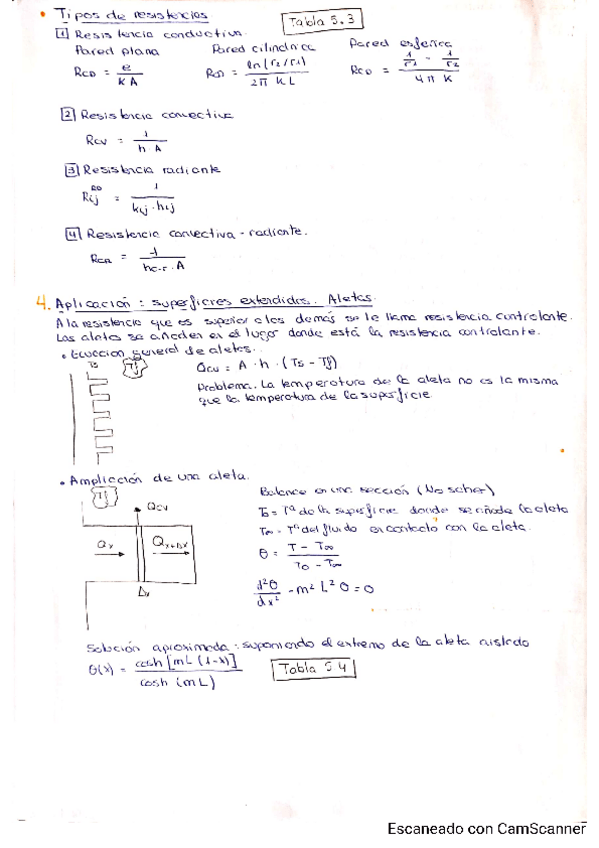 • Tipos de resistencias
Tabla 5.3
1 Resistencia conductiva
Pared plana Pared cilindrica Pared esferica
Rcd = e / k A Rcd = ln(r2/r1) / 2π k L Rcd = (1/r1 - 1/r2) / 4π k
2 Resistencia convectiva
Rcv = 1 / h A
3 Resistencia radiante
Rij^RD = 1 / kij · hij
4 Resistencia convectiva - radiante.
Rcr = 1 / hc-r · A
4. Aplicación: superficies extendidas. Aletas.
A la resistencia que es superior a las demás se le llama resistencia controlante.
Las aletas se añaden en el lugar donde está la resistencia controlante.
• Ecuación general de aletas.
Ts Tf Qcv = A · h · (Ts - Tf)
Problema. La temperatura de la aleta no es la misma
que la temperatura de la superficie
• Amplicción de una aleta.
Tf
Qcv
Qx Qx+Δx
Δx
Balance en una sección (No saber)
To = Tª de la superficie donde se añade la aleta
T∞ = Tª del fluido en contacto con la aleta.
θ = T - T∞ / To - T∞
d²θ / dx² - m² L² θ = 0
Solución aproximada: suponiendo el extremo de la aleta aislado
θ(x) = cosh [mL (1-x)] / cosh (mL)
Tabla 5.4
Escaneado con CamScanner